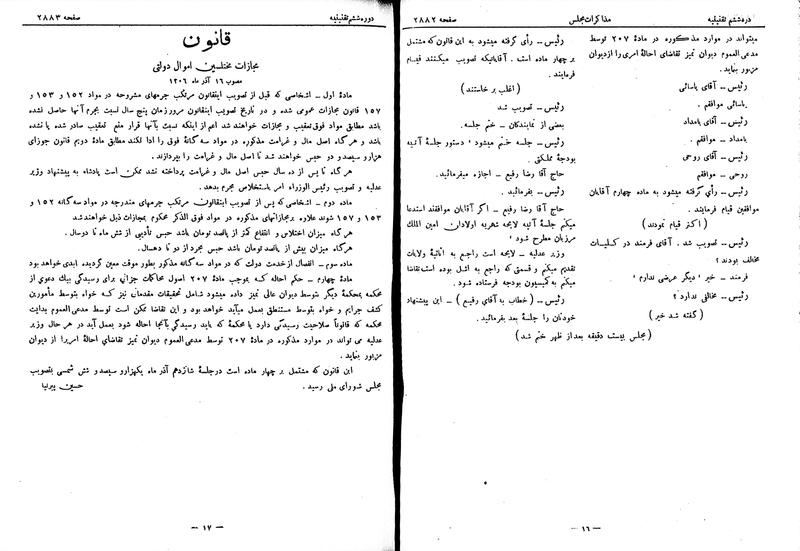 دوره ششم تقنینیه
مذاکرات مجلس
صفحه ۲۸۸۲
میتواند در موارد مذکوره در مادهٔ ۲۰۷ توسط
مدعی‌العموم دیوان تمیز تقاضای احالهٔ امری را ازدیوان
مزبور بنماید.
رئیس – آقای یاسائی
یاسائی موافقم.
رئیس – آقای بامداد
بامداد – موافقم.
رئیس – آقای روحی
روحی – موافقم
رئیس – رأی گرفته میشود به ماده چهارم آقایان
موافقین قیام فرمایند.
(اکثر قیام نمودند)
رئیس – تصویب شد. آقای فرمند در کلیات
مخالف بودند؟
فرمند – خیر، دیگر عرضی ندارم،
رئیس – مخالفی ندارد؟
(گفته شد خیر)
رئیس – رأی گرفته میشود به این قانون که مشتمل
بر چهار ماده است. آقایانیکه تصویب میکنند قیام
فرمایند.
(اغلب بر خاستند)
رئیس – تصویب شد
بعضی از نمایندگان – ختم جلسه.
رئیس – جلسه ختم میشود، دستور جلسه آتیه
بودجهٔ مملکتی
حاج آقا رضا رفیع – اجازه میفرمائید.
رئیس – بفرمائید.
حاج آقا رضا رفیع – اگر آقایان موافقند استدعا
میکنم جلسهٔ آتیه لایحه شهریه اولادان امین الملک
مرزبان مطرح شود،
وزیر عدلیه – لایحه است راجع به اثاثیهٔ ولایات
تقدیم میکنم و قسمتی که راجع به اشل بوده است تقاضا
میکنم به کمیسیون بودجه فرستاده شود.
رئیس – (خطاب به آقای رفیع) – این پیشنهاد
خودتان را جلسهٔ بعد بفرمائید.
(مجلس بیست دقیقه بعد از ظهر ختم شد)
– ۱۶ –
دوره ششم تقنینیه
صفحه ۲۸۸۳
قانون
مجازات مختلسین اموال دولتی
مصوب ۱۶ آذر ماه ۱۳۰۶
مادهٔ اول – اشخاصی که قبل از تصویب اینقانون مرتکب جرمهای مشروحه در مواد ۱۵۲ و ۱۵۳ و
۱۵۷ قانون مجازات عمومی شده و در تاریخ تصویب اینقانون مرور زمان پنج سال نسبت بجرم آنها حاصل نشده
باشد مطابق مواد فوق تعقیب و مجازات خواهند شد اعم از اینکه نسبت بآنها قرار منع تعقیب صادر شده یا نشده
باشد و هر گاه اصل مال و غرامت مذکوره در مواد سه گانهٔ فوق را ادا نکنند مطابق مادهٔ دویم قانون جوزای
هزار و سیصد و دو حبس خواهند شد تا اصل مال و غرامت را بپردازند.
هر گاه تا پس از ده سال حبس اصل مال و غرامت پرداخته نشد ممکن است پادشاه به پیشنهاد وزیر
عدلیه و تصویب رئیس الوزراء امر باستخلاص مجرم بدهد.
ماده دوم – اشخاصی که پس از تصویب اینقانون مرتکب جرمهای مندرجه در مواد سه گانه ۱۵۲ و
۱۵۳ و ۱۵۷ شوند علاوه بر مجازاتهای مذکوره در مواد فوق الذکر محکوم بمجازات ذیل خواهند شد
هر گاه میزان اختلاس و انتفاع کمتر از پانصد تومان باشد حبس تأدیبی از شش ماه تا دو سال.
هر گاه میزان بیش از پانصد تومان باشد حبس مجرد از دو تا دهسال.
ماده سوم – انفصال از خدمت دولت که در مواد سه گانه مذکور بطور موقت معین گردیده ابدی خواهد بود
مادهٔ چهارم – حکم احاله که بموجب مادهٔ ۲۰۷ اصول محاکمات جزائی برای رسیدگی بیک دعوی از
محکمه بمحکمهٔ دیگر بتوسط دیوان عالی تمیز داده میشود شامل تحقیقات مقدماتی نیز که خواه بتوسط مأمورین
کشف جرایم و خواه بتوسط مستنطق بعمل میآید خواهد بود و این تقاضا ممکن است توسط مدعی العموم بدایت
محکمه که قانوناً صلاحیت رسیدگی دارد یا محکمهٔ که باید رسیدگی بآنجا احاله شود بعمل آید در هر حال وزیر
عدلیه می تواند در موارد مذکوره در مادهٔ ۲۰۷ توسط مدعی العموم دیوان تمیز تقاضای احالهٔ امری را از دیوان
مزبور بنماید.
این قانون که مشتمل بر چهار ماده است در جلسهٔ شانزدهم آذر ماه یکهزار و سیصد و شش شمسی بتصویب
مجلس شورای ملی رسید.
حسین پیرنیا
– ۱۷ –